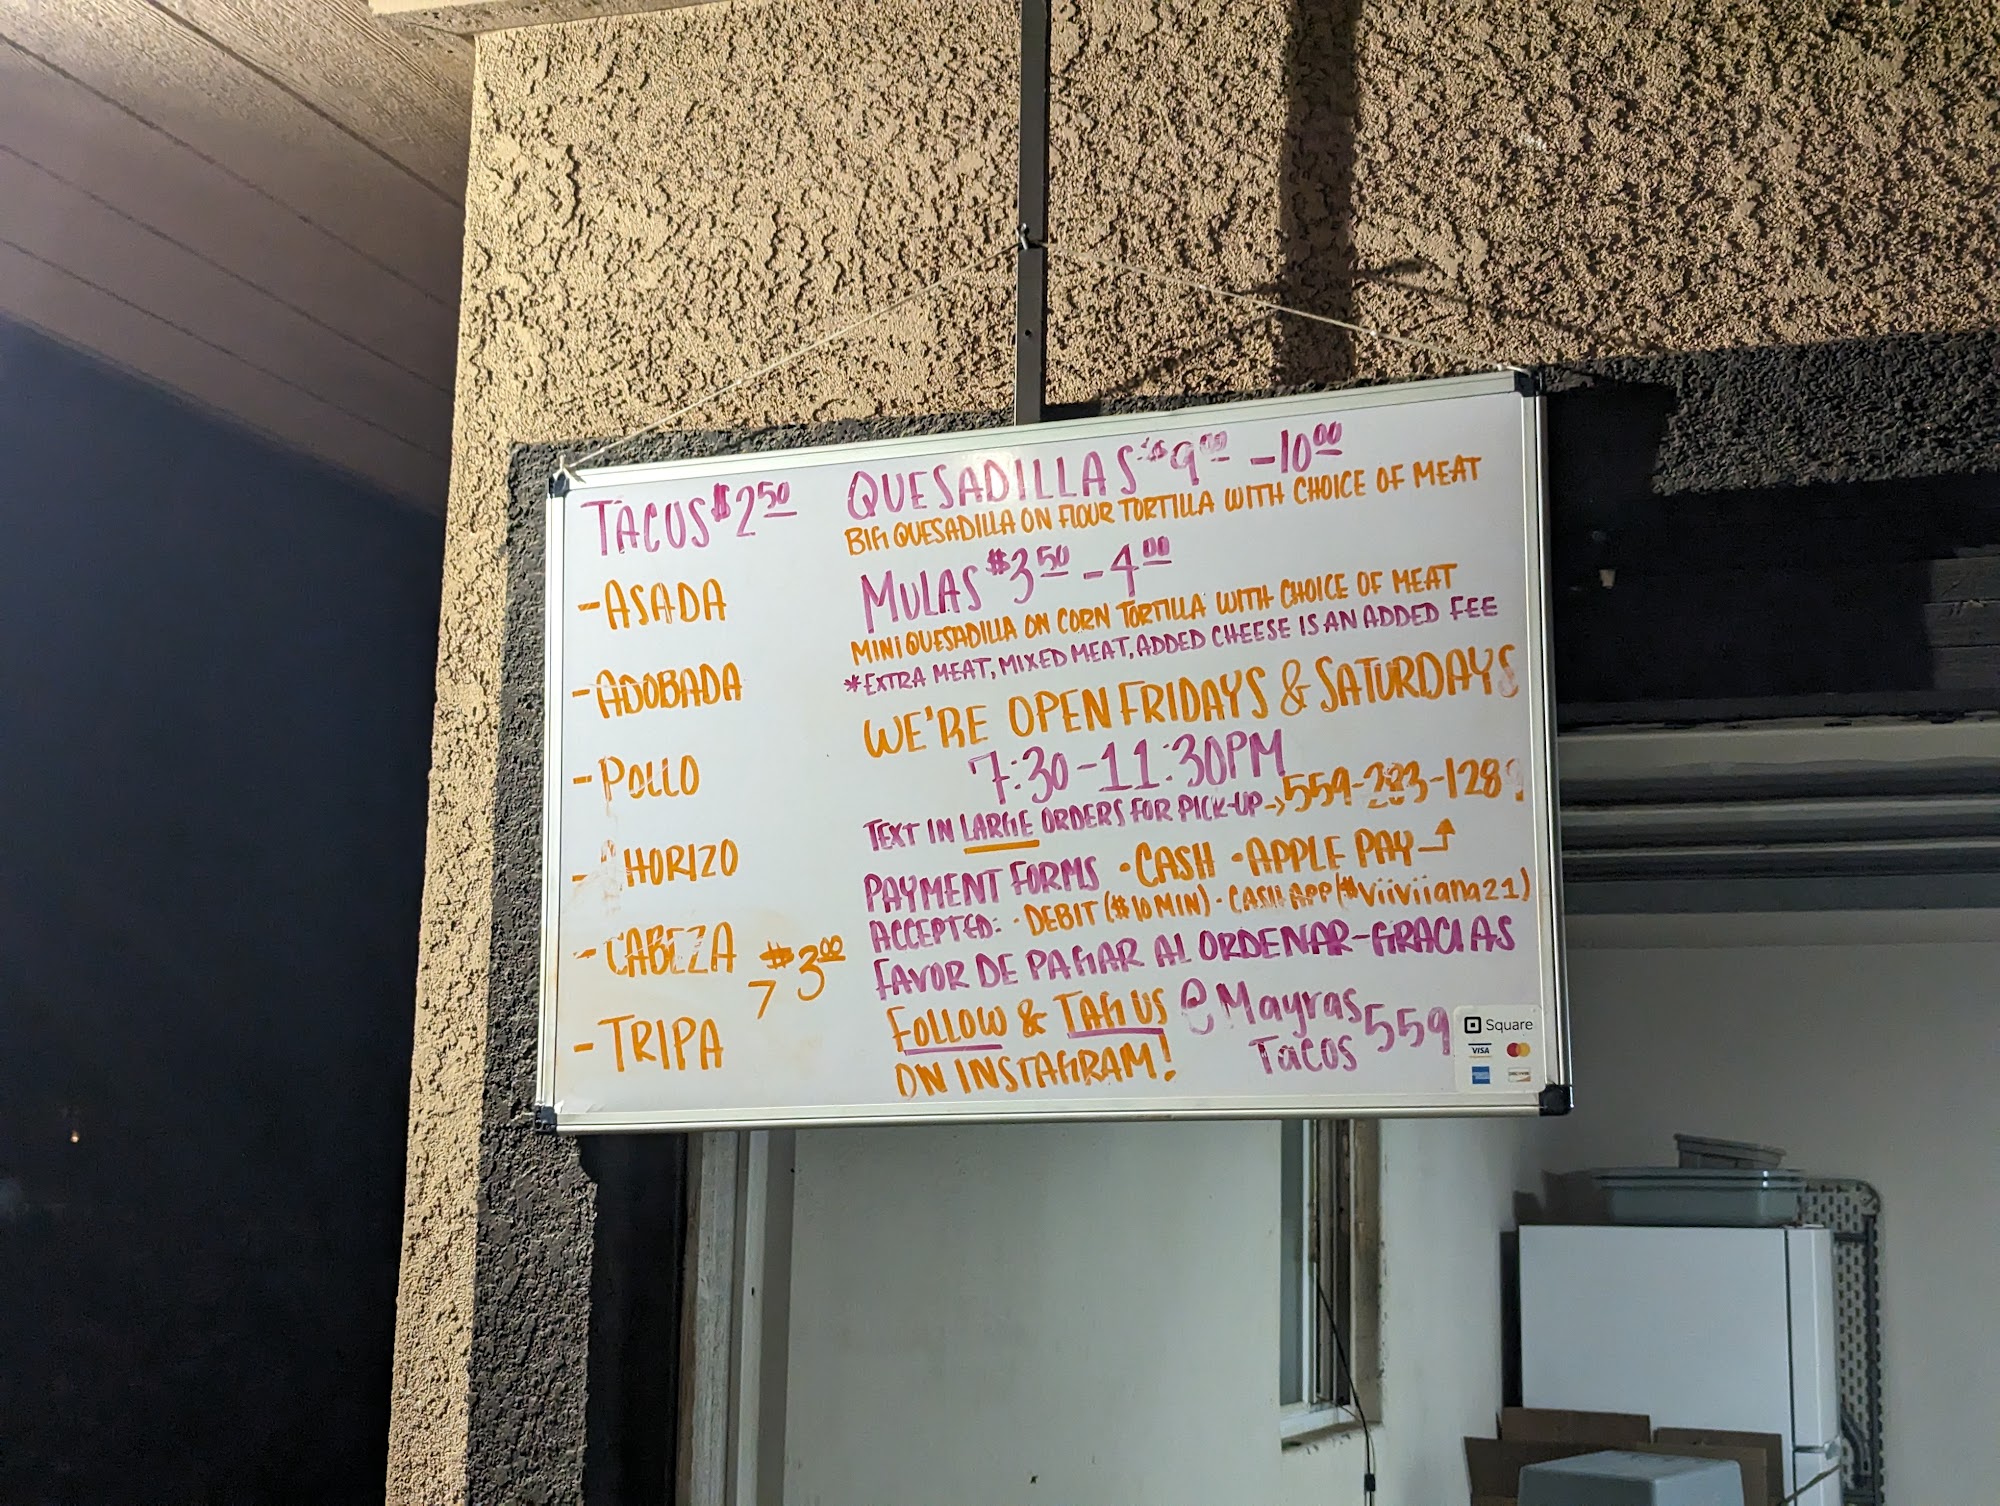 TACOS $2.50
-ASADA
-ADOBADA
-POLLO
-CHORIZO
-CABEZA $3.00
-TRIPA
QUESADILLAS $9.00 -10.00
BIG QUESADILLA ON FLOUR TORTILLA WITH CHOICE OF MEAT
MULAS $3.50 -4.00
MINI QUESADILLA ON CORN TORTILLA WITH CHOICE OF MEAT
*EXTRA MEAT, MIXED MEAT, ADDED CHEESE IS AN ADDED FEE
WE'RE OPEN FRIDAYS & SATURDAYS
7:30-11:30PM
TEXT IN LARGE ORDERS FOR PICK-UP → 559-283-1289
PAYMENT FORMS •CASH •APPLE PAY
ACCEPTED: •DEBIT ($10 MIN) •CASH APP ($Viiviiana21)
FAVOR DE PAGAR AL ORDENAR-GRACIAS
FOLLOW & TAG US @Mayras
ON INSTAGRAM! Tacos 559
Square
VISA